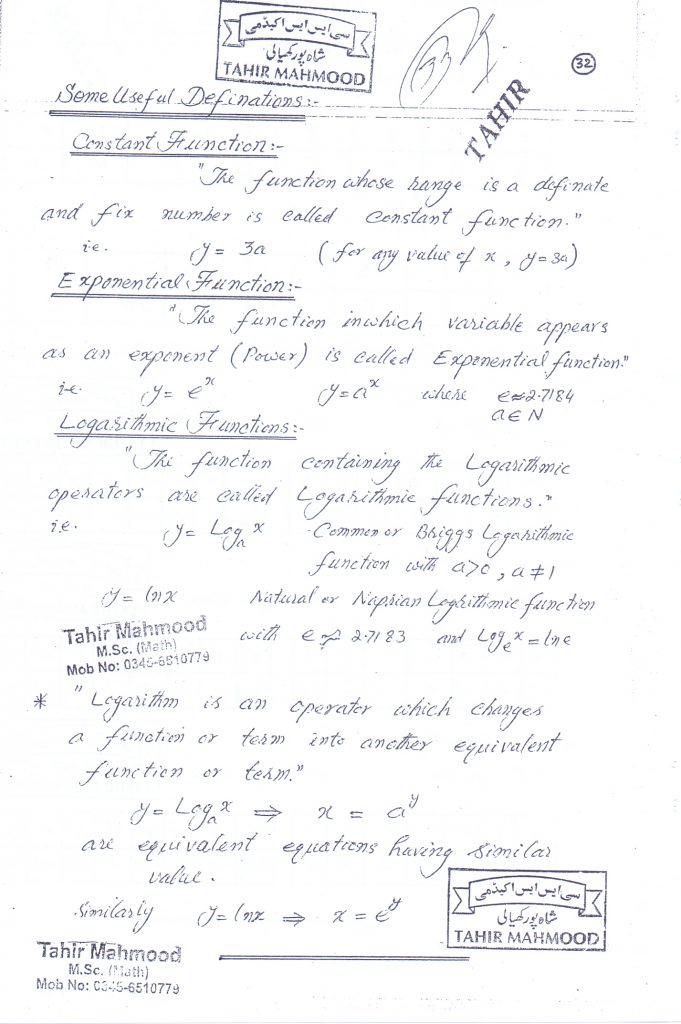 سی ایس ایس اکیڈمی
شاہ پور کھیالی
TAHIR MAHMOOD
32
TAHIR
Some Useful Definations:-
Constant Function:-
"The function whose range is a definate
and fix number is called Constant function."
i.e. y = 3a (for any value of x, y=3a)
Exponential Function:-
"The function inwhich variable appears
as an exponent (Power) is called Exponential function."
i.e. y = e^x y = a^x where e≈2.7184
a ∈ N
Logarithmic Functions:-
"The function containing the Logarithmic
operators are called Logarithmic functions."
i.e. y = Log_a x Common or Briggs Logarithmic
function with a>0, a≠1
y = lnx Natural or Naprian Logarithmic function
with e ≈ 2.7183 and Log_e x = ln e
Tahir Mahmood
M.Sc. (Math)
Mob No: 0345-6510779
* "Logarithm is an operator which changes
a function or term into another equivalent
function or term."
y = Log_a x ⇒ x = a^y
are equivalent equations having similar
value.
Similarly y = lnx ⇒ x = e^y
سی ایس ایس اکیڈمی
شاہ پور کھیالی
TAHIR MAHMOOD
Tahir Mahmood
M.Sc. (Math)
Mob No: 0345-6510779